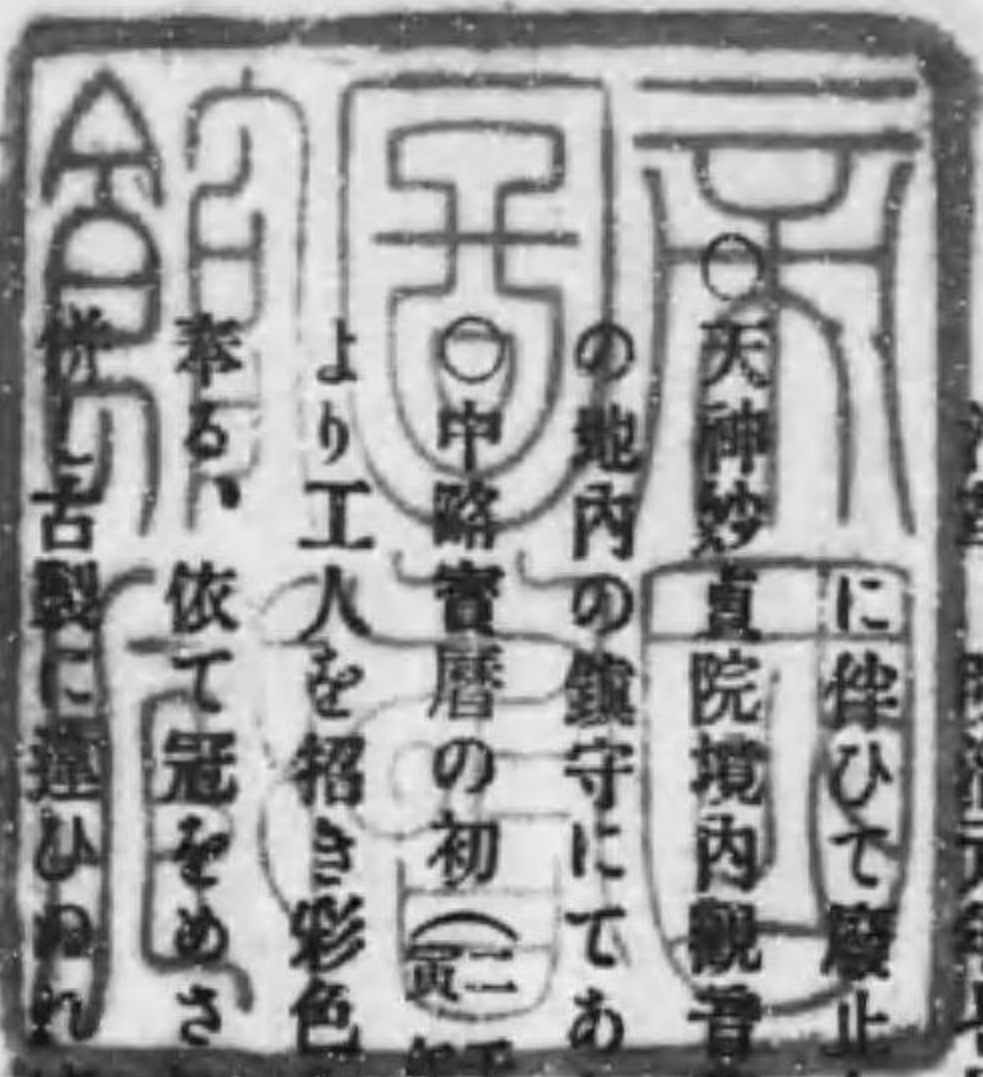 に伴ひて廢止
〇天神妙貞院境内觀音
の地內の鎭守にてあ
〇中略寳曆の初(二寅
より工人を招き彩色
奉る、依て冠をめさ
併し古製に違ひぬれ
帝國
圖書
館藏